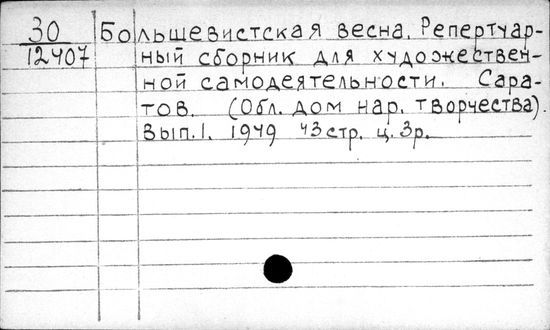 30 Большевистская весна. Репертуар-
12407 ный сборник для художествен-
ной самодеятельности. Сара-
тов. (Обл. дом нар. творчества).
Вып. 1. 1949 43 стр. ц. 3р.